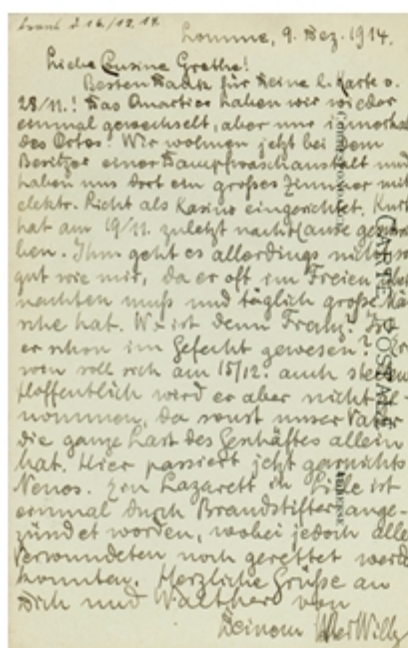 Lomme, 9. Dez. 1914.
Liebe Cousine Grethe!
Besten Dank für Deine l. Karte v.
28/11.! Das Quartier haben wir wieder
einmal gewechselt, aber nur innerhalb
des Ortes! Wir wohnen jetzt bei dem
Besitzer einer Dampfwaschanstalt und
haben uns dort ein großes Zimmer mit
elektr. Licht als Kasino eingerichtet. Kurt
hat am 19/11. zuletzt nach Hause geschrie-
ben. Ihm geht es allerdings nicht so
gut wie mir, da er oft im Freien
nachten muß und täglich große
sche hat. Wo ist denn Franz? Ist
er schon im Gefecht gewesen?
win soll sich am 15/12. auch stellen
Hoffentlich wird er aber nicht
nommen, da sonst unser Vater
die ganze Last des Geschäftes allein
hat. Hier passiert jetzt garnichts
Neues. Ein Lazarett in Lille ist
einmal durch Brandstifter ange-
zündet worden, wobei jedoch alle
Verwundeten noch gerettet werden
konnten. Herzliche Grüße an
Dich und Walther von
Deinem Willy
CARTE POSTALE